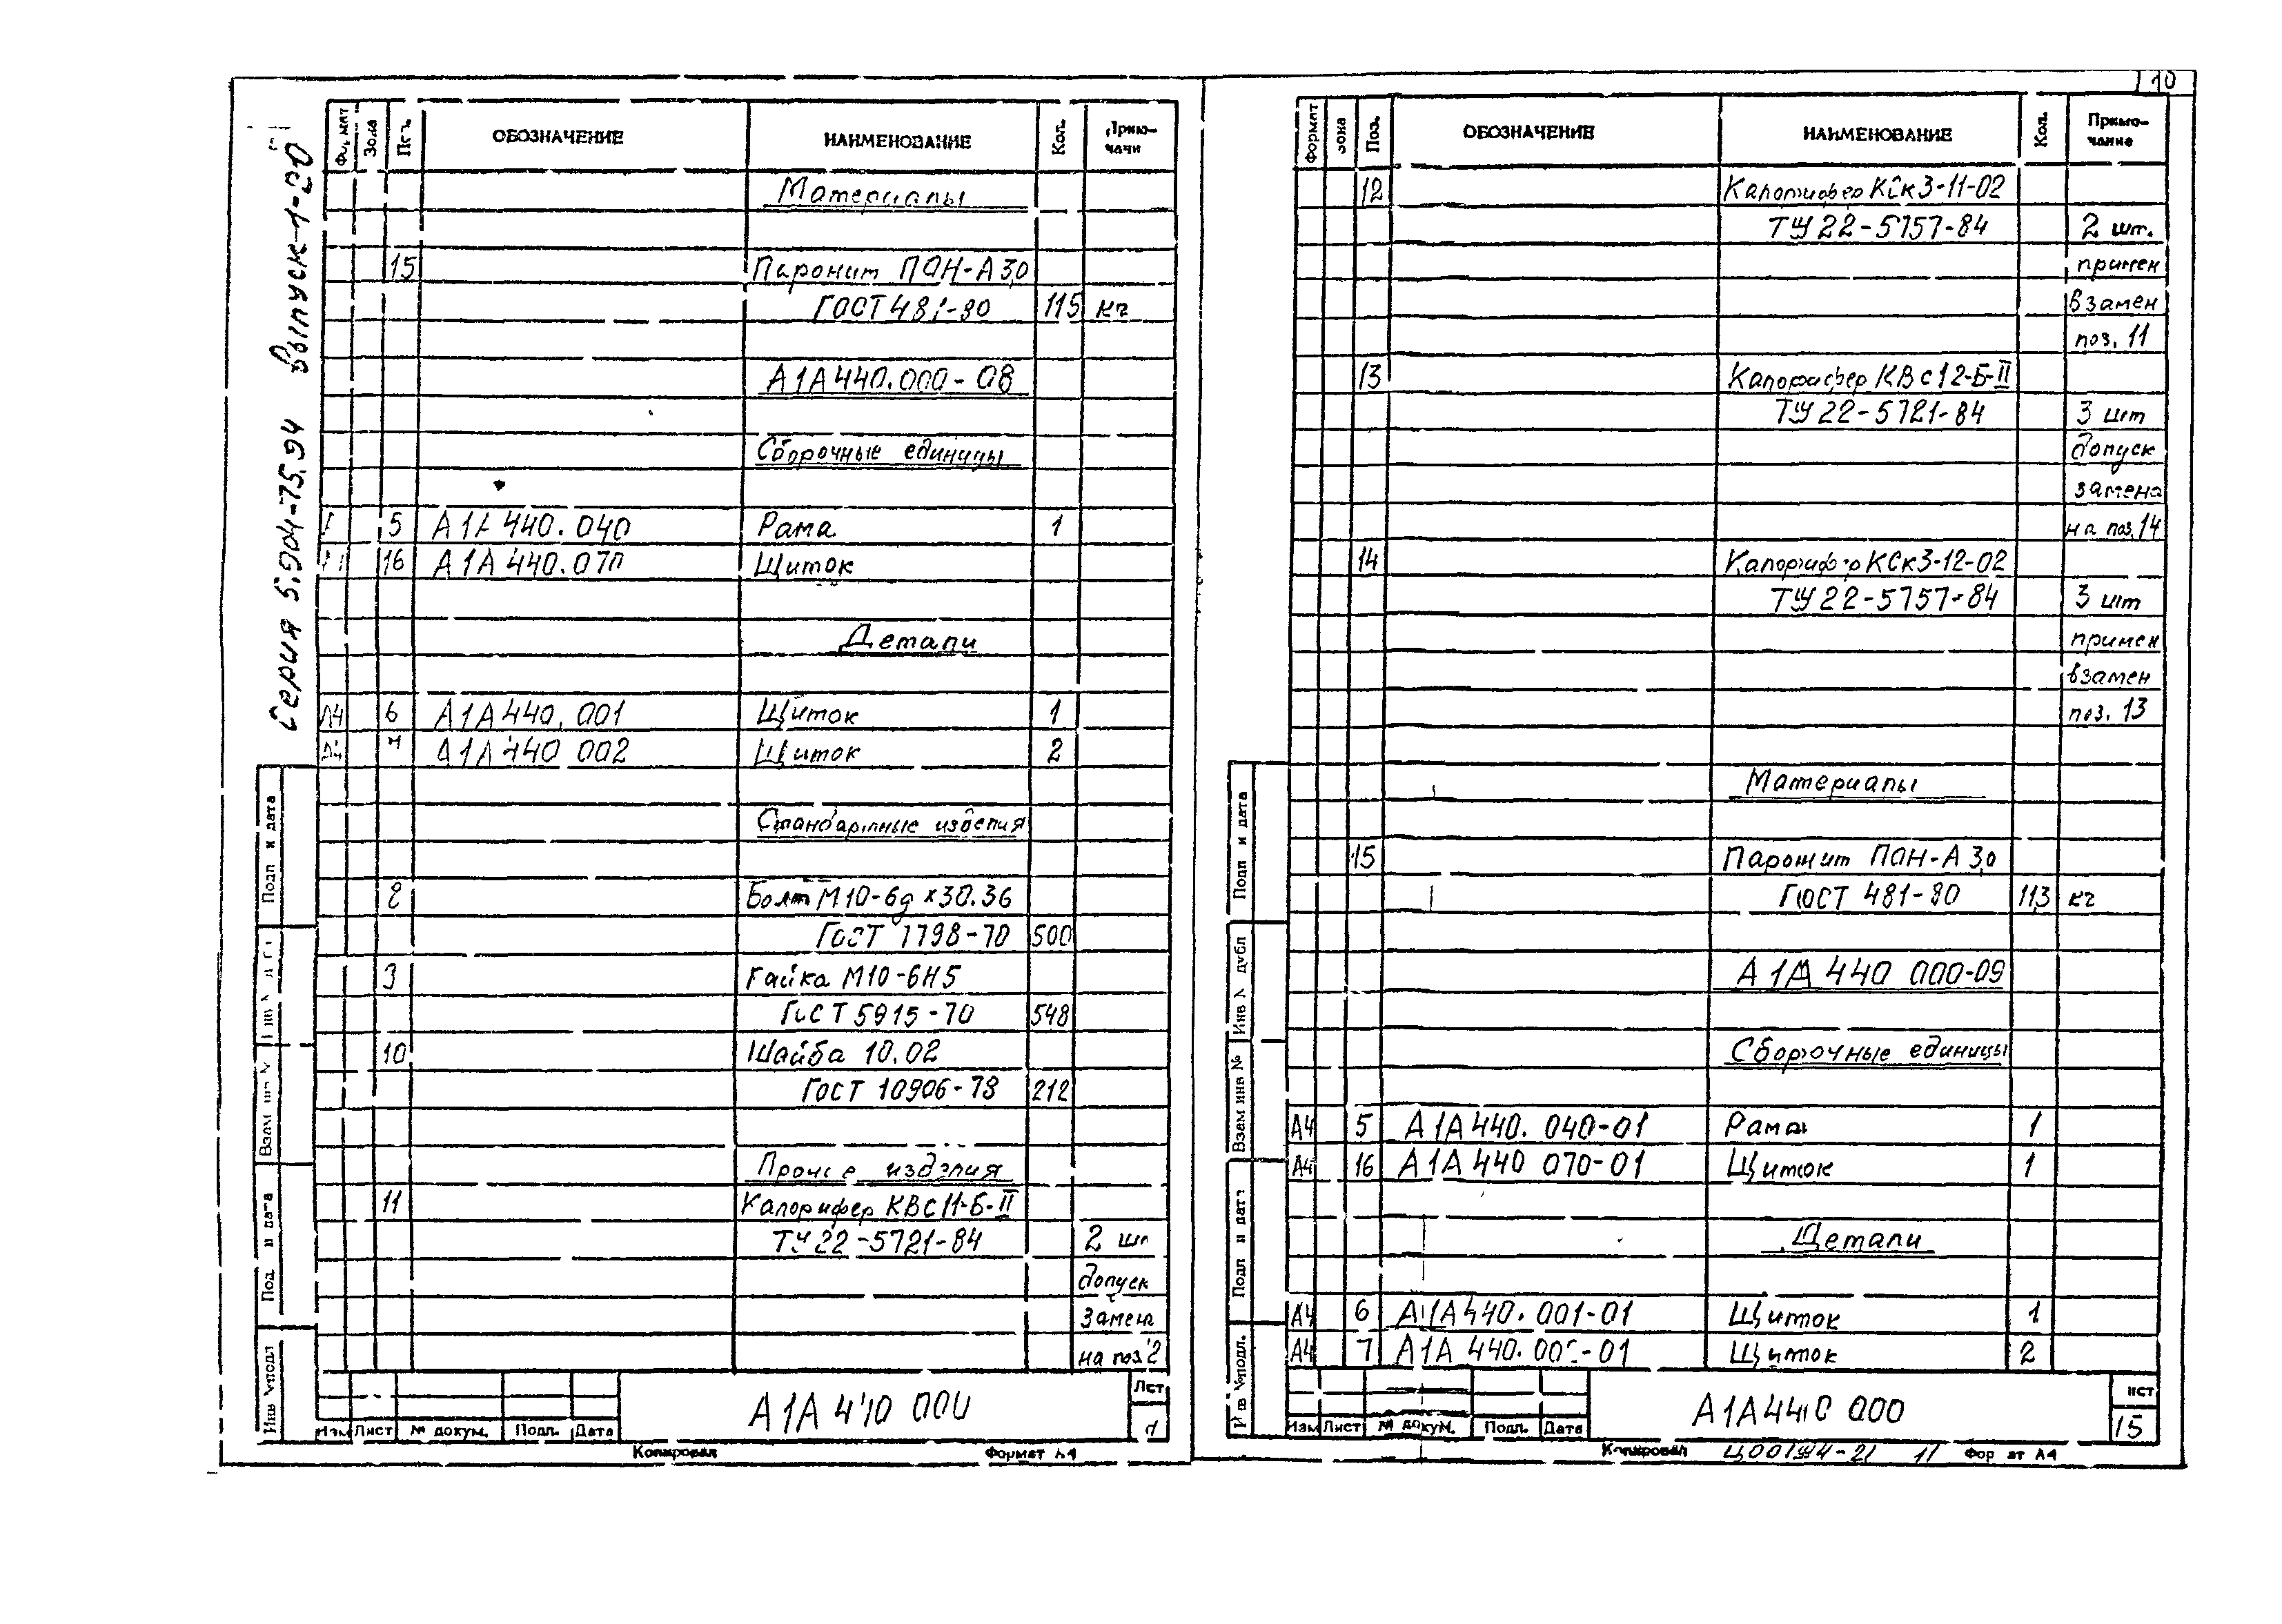 10
Серия 5.904-75.94 Выпуск 1-20
Зона ОБОЗНАЧЕНИЕ НАИМЕНОВАНИЕ Кол.
Материалы
15 Паронит ПОН-А 3,0
ГОСТ 481-80 115 кг
А1А440.000-08
Сборочные единицы
5 А1А 440.040 Рама 1
16 А1А 440.070 Щиток
Детали
А4 6 А1А440.001 Щиток 1
А4 А1А440 002 Щиток 2
Стандартные изделия
Болт М10-6g×30.36
ГОСТ 7798-70 500
Гайка М10-6Н5
ГОСТ 5915-70 548
10 Шайба 10.02
ГОСТ 10906-78 212
Прочие изделия
11 Калорифер КВс11-Б-II
ТУ 22-5721-84 2
допуск
замена
на поз.
Изм Лист № докум. Подп. Дата
А1А 440 000
Копировал Формат А4
Подп и дата
Взам инв №
Инв №подл
Формат Зона Поз. ОБОЗНАЧЕНИЕ НАИМЕНОВАНИЕ Кол. Приме-
чание
12 Калорифер КСк3-11-02
ТУ 22-5757-84 2 шт.
примен
взамен
поз. 11
13 Калорифер КВс12-Б-II
ТУ 22-5721-84 3 шт
допуск
замена
на поз.14
14 Калорифер КСк3-12-02
ТУ 22-5757-84 3 шт
примен
взамен
поз. 13
Материалы
15 Паронит ПОН-А 3,0
ГОСТ 481-80 11,3 кг
А1А 440 000-09
Сборочные единицы
А4 5 А1А440. 040-01 Рама 1
А4 16 А1А 440 070-01 Щиток 1
Детали
А4 6 А1А440.001-01 Щиток 1
А4 7 А1А 440.002-01 Щиток 2
Изм Лист № докум. Подп. Дата
А1А440 000
15
Копировал 11 Формат А4
Подп и дата
Инв № дубл
Взам инв №
Подп и дата
Инв №подл.